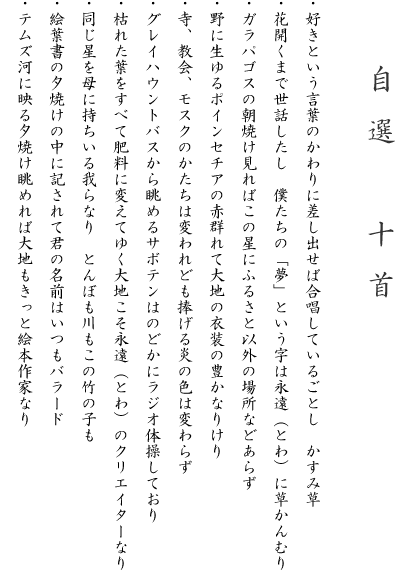 自選 十首
・好きという言葉のかわりに差し出せば合唱しているごとし かすみ草
・花開くまで世話したし 僕たちの「夢」という字は永遠（とわ）に草かんむり
・ガラパゴスの朝焼け見ればこの星にふるさと以外の場所などあらず
・野に生ゆるポインセチアの赤群れて大地の衣装の豊かなりけり
・寺、教会、モスクのかたちは変われども捧げる炎の色は変わらず
・グレイハウントバスから眺めるサボテンはのどかにラジオ体操しており
・枯れた葉をすべて肥料に変えてゆく大地こそ永遠（とわ）のクリエイターなり
・同じ星を母に持ちいる我らなり とんぼも川もこの竹の子も
・絵葉書の夕焼けの中に記されて君の名前はいつもバラード
・テムズ河に映る夕焼け眺めれば大地もきっと絵本作家なり